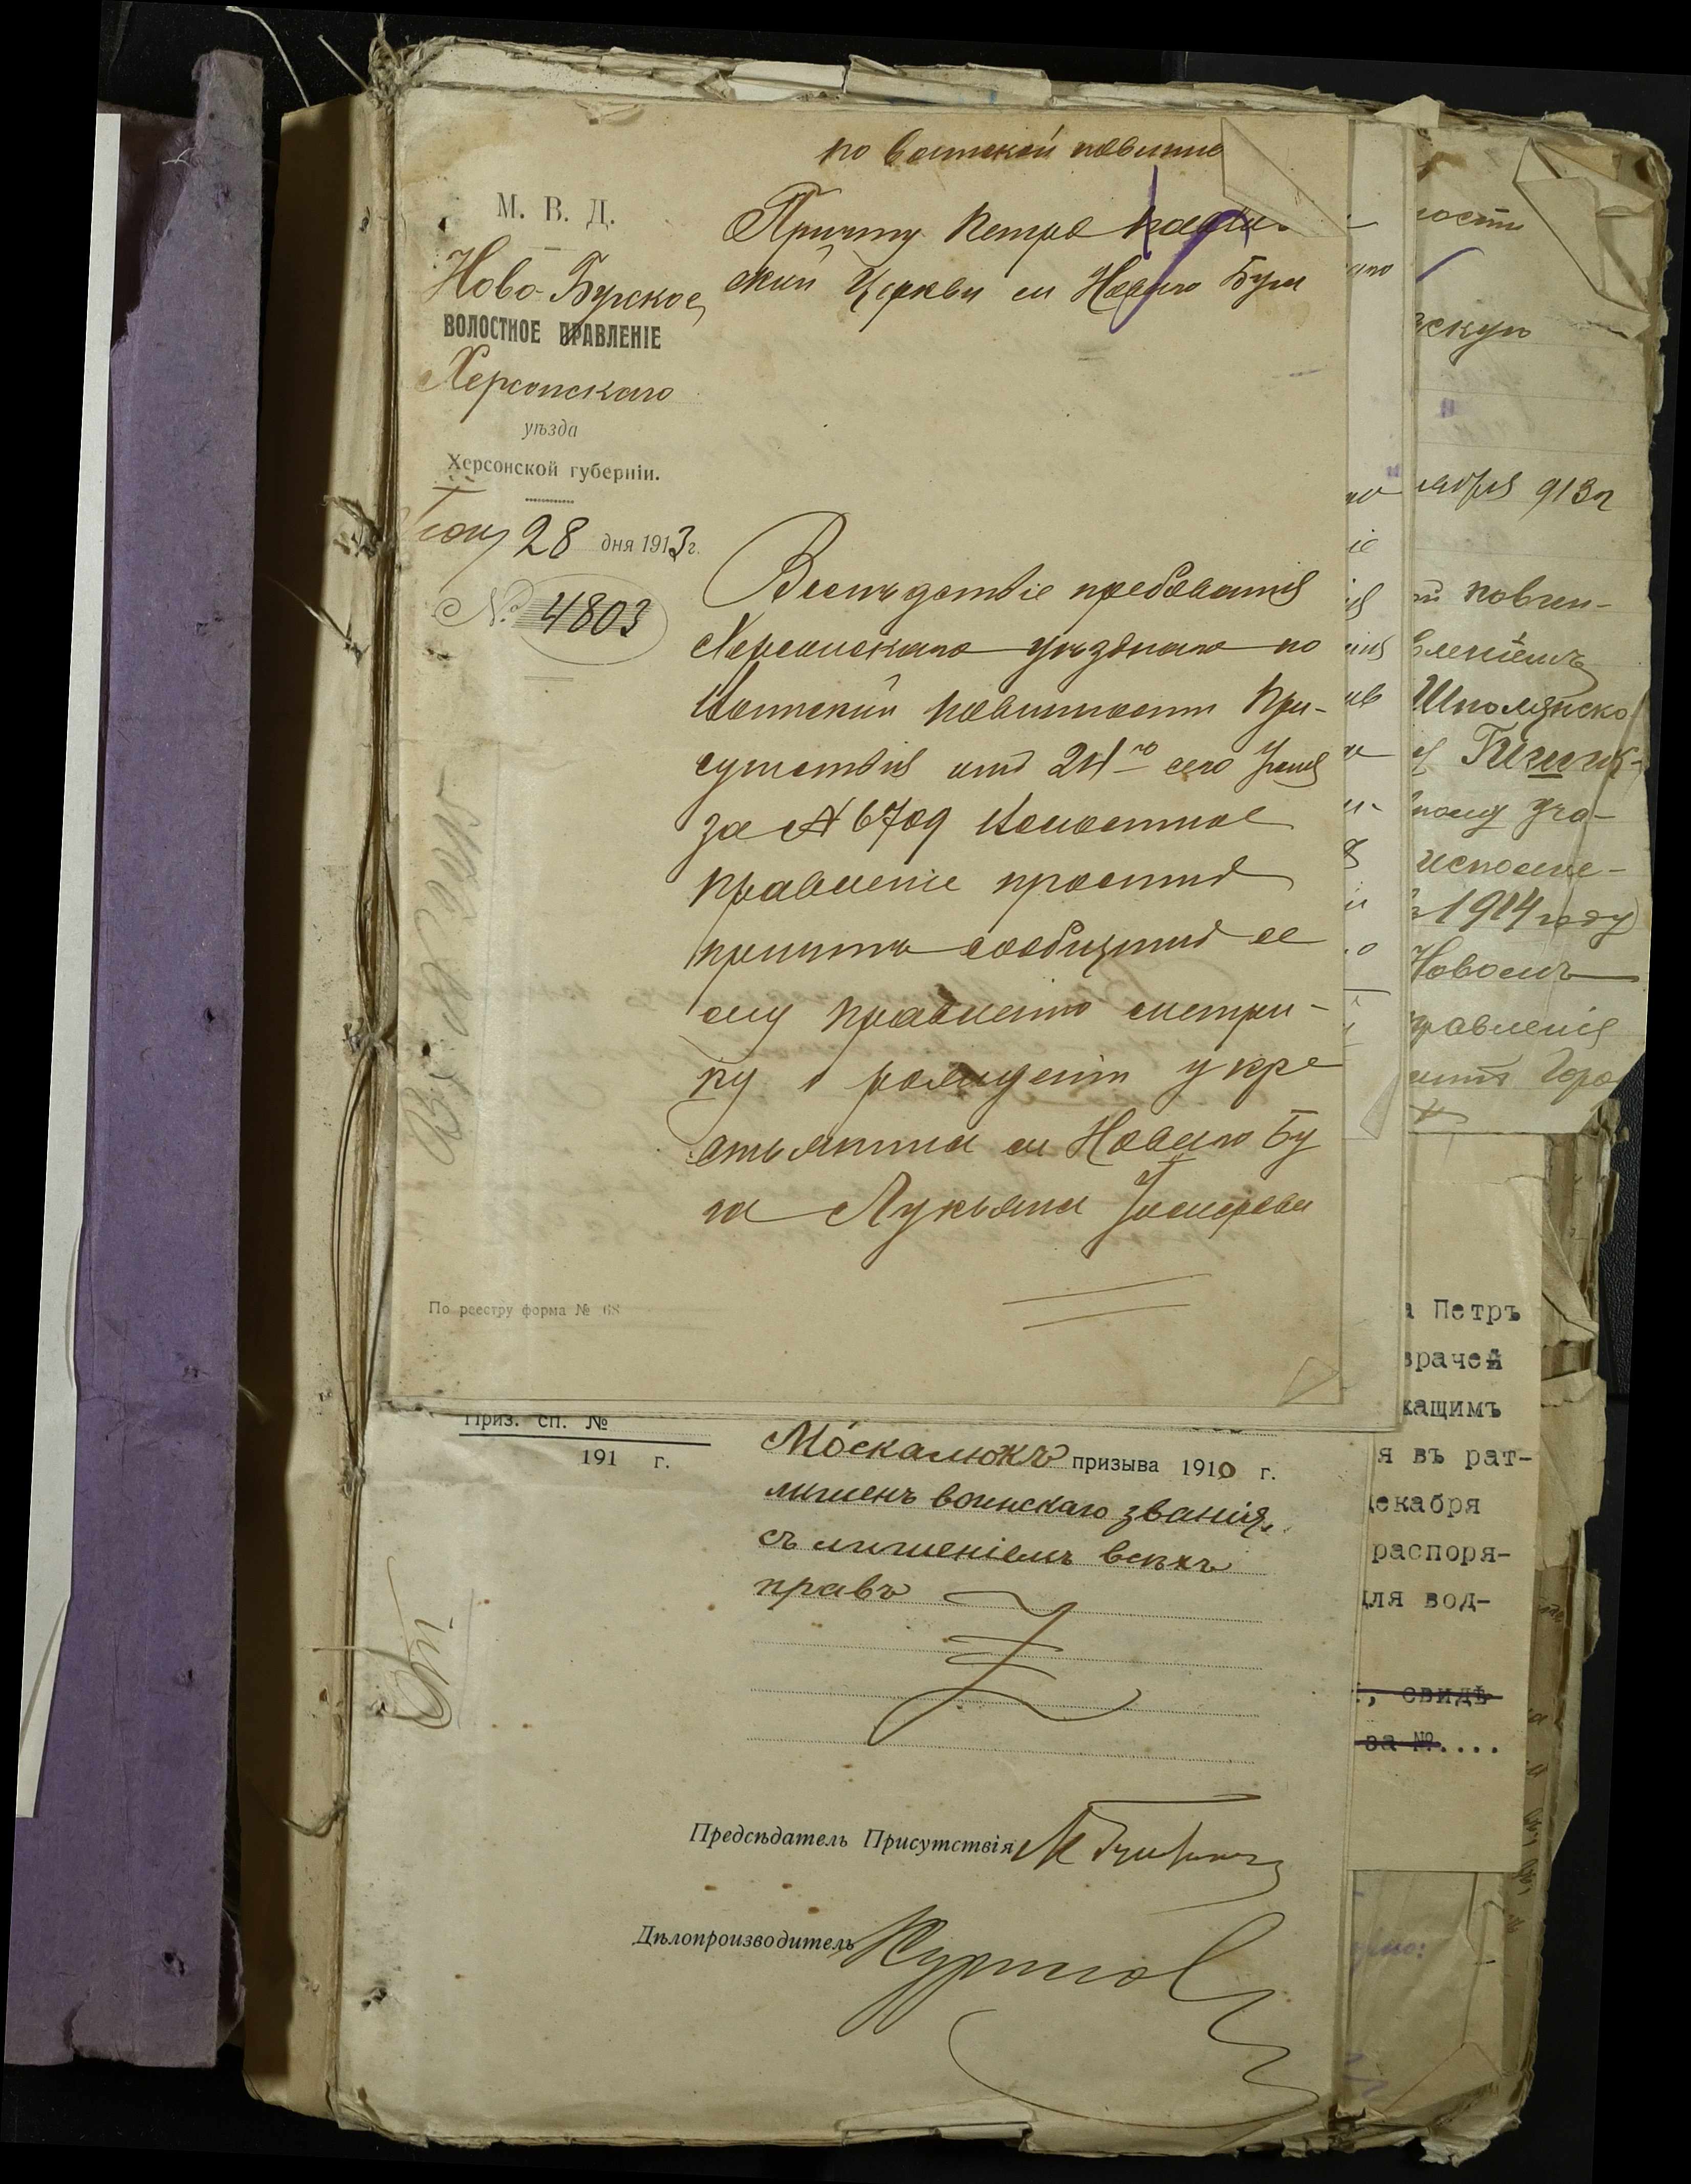 по воинской повинно
М. В. Д.
Ново-Бугское
ВОЛОСТНОЕ ПРАВЛЕНІЕ
Херсонскаго
уѣзда
Херсонской губерніи.
28 дня 1913 г.
№ 4803
Причту Петро Павлов
ской Церкви с. Новаго Буга
Вслѣдствіе требованія
Херсонскаго уѣзднаго по
Воинской повинности При-
сутствія отъ 24го сего
за № 6709 Волостное
правленіе проситъ
причтъ сообщить се
му правленію метри-
ку о рожденіи у кре
стьянина с. Новаго Бу
га Лукьяна
По реестру форма № 68
Приз. сп. №
191 г.
Москалюкъ призыва 1910 г.
лишенъ воинскаго званія,
съ лишеніемъ всѣхъ
правъ
Предсѣдатель Присутствія
Дѣлопроизводитель
ости
скую
913 г
повин-
вленіемъ
Шполянско
ному уча-
исполне-
1914 году
Новомъ
правленія
а Петръ
врачей
жащимъ
я въ рат-
декабря
распоря-
для вод-
свидѣ
за №....